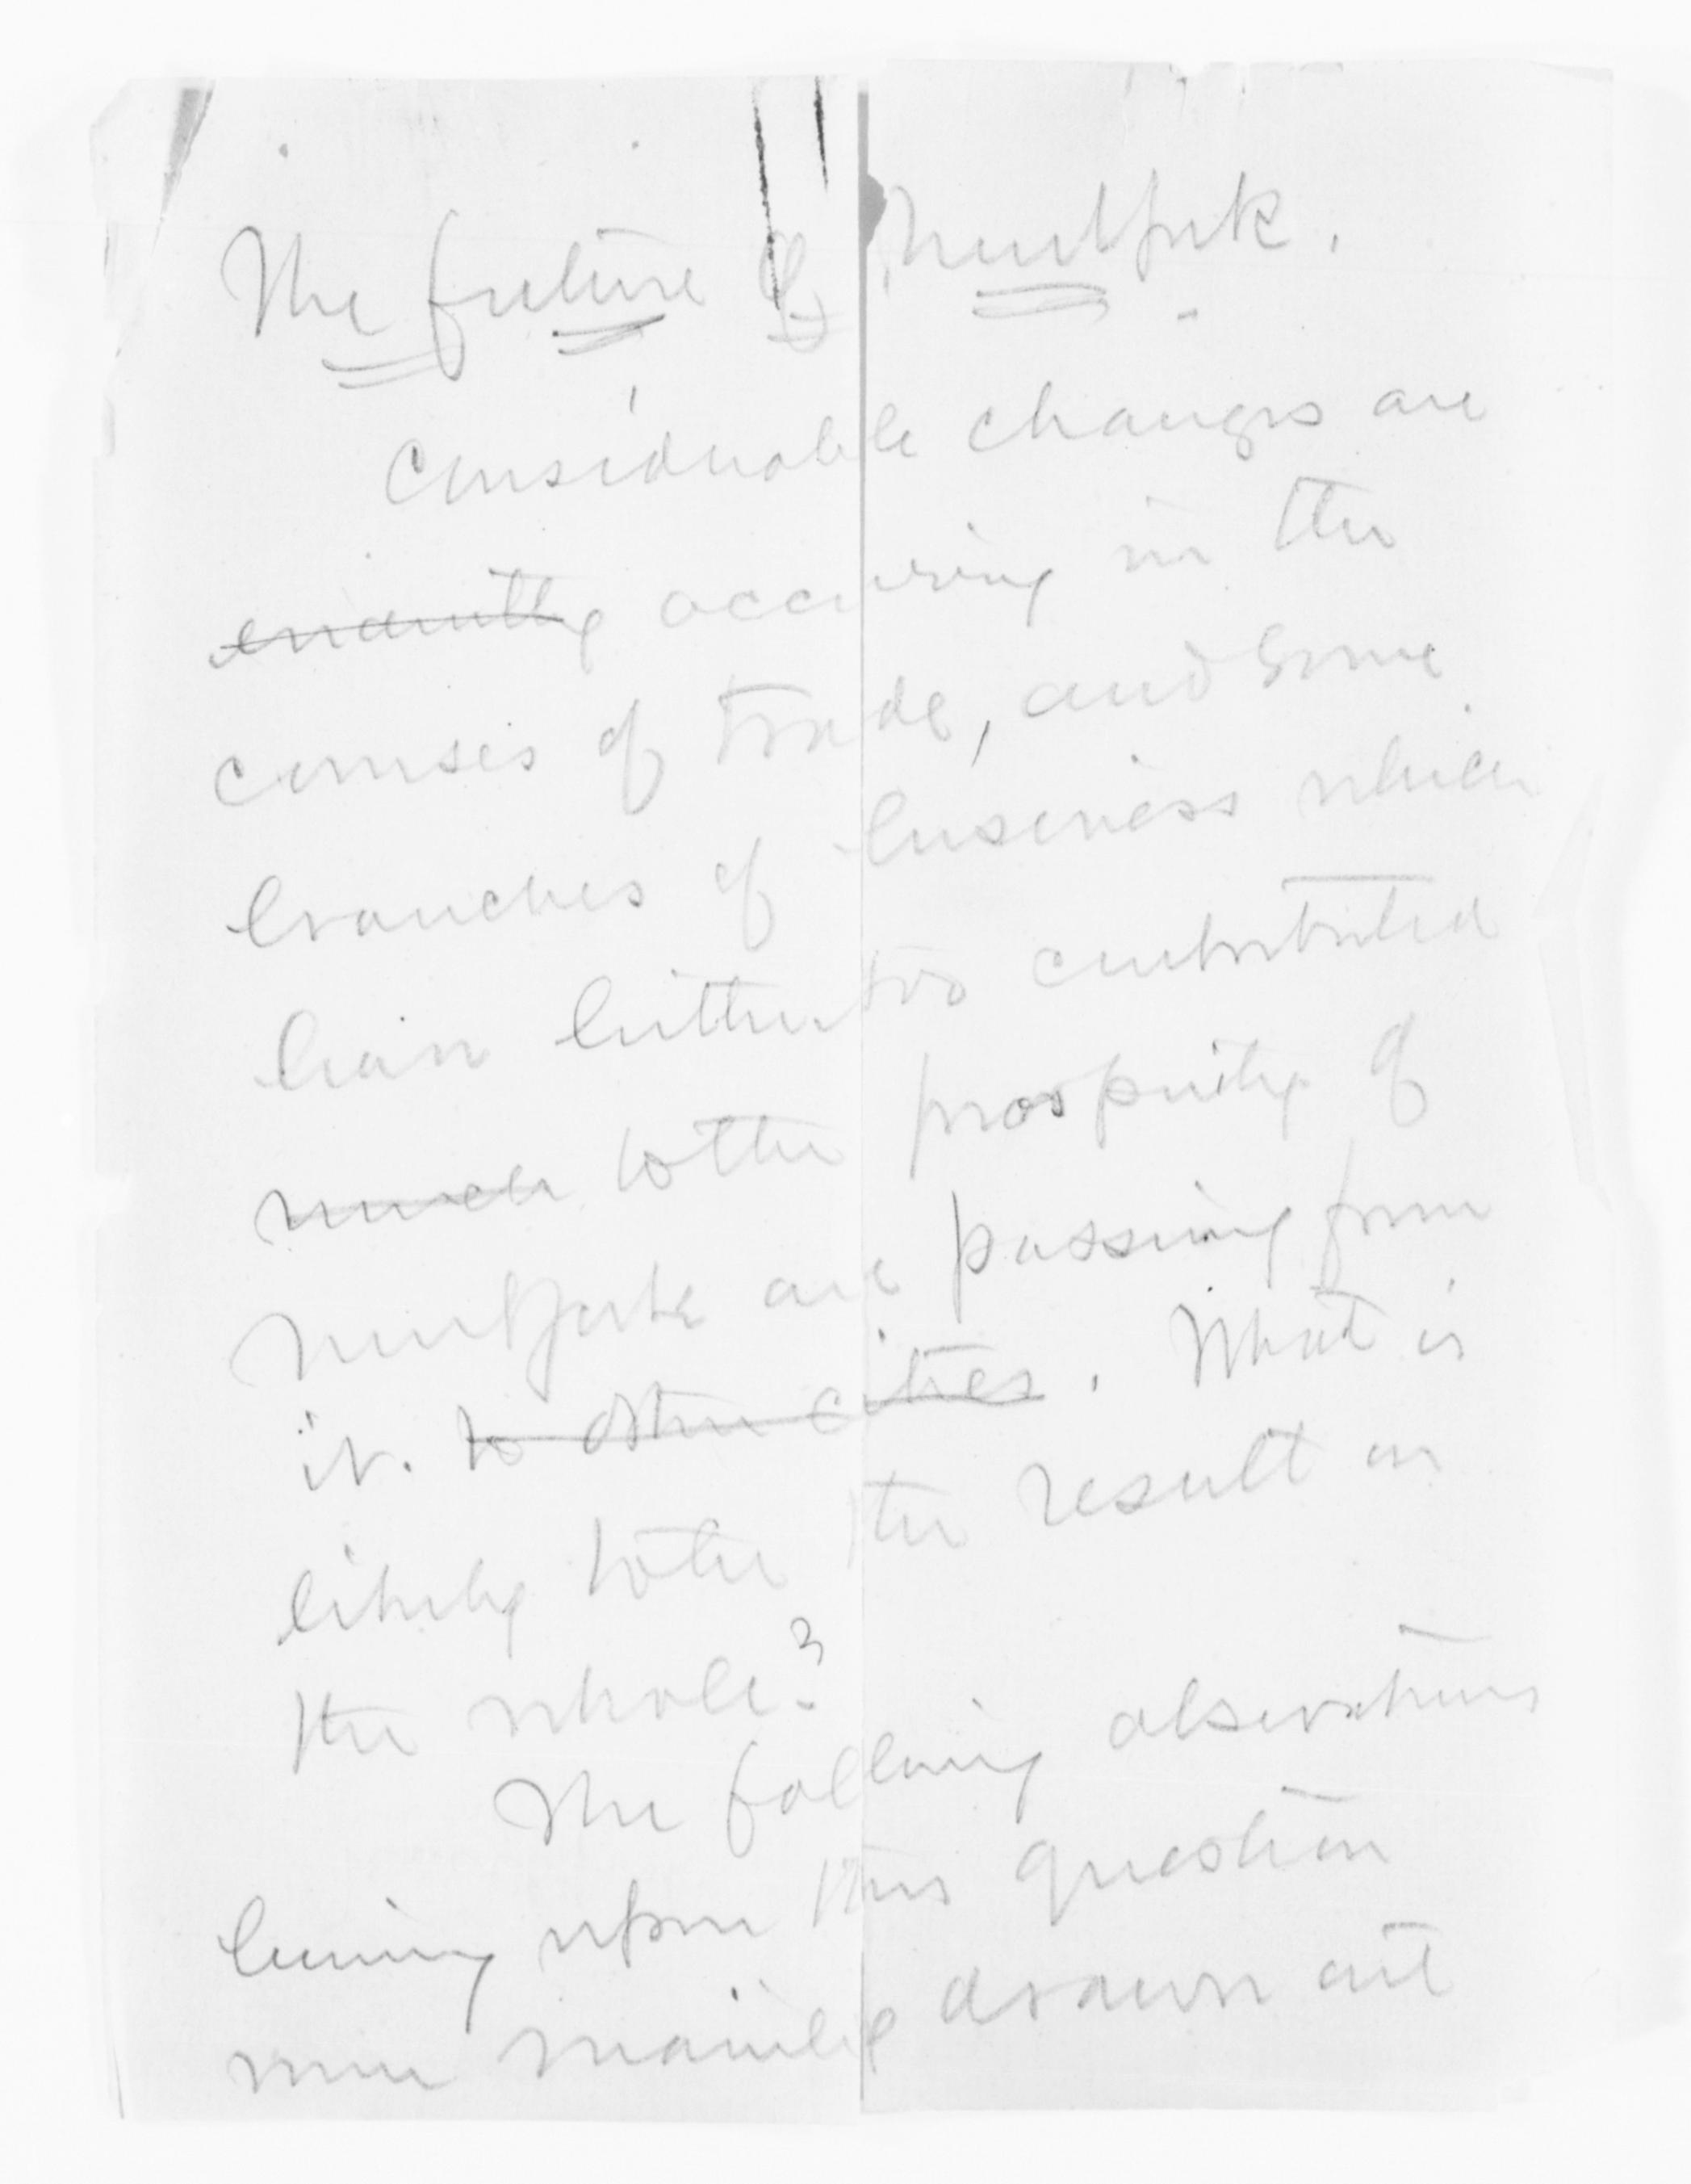 The future of New York.
Considerable changes are
evidently occuring in the
courses of trade, and some
branches of business which
have hitherto contributed
much to the prosperity of
New York are passing from
it. to other cities. What is
likely to be the result on
the whole?
The following observations
bearing upon this question
were mainly drawn out